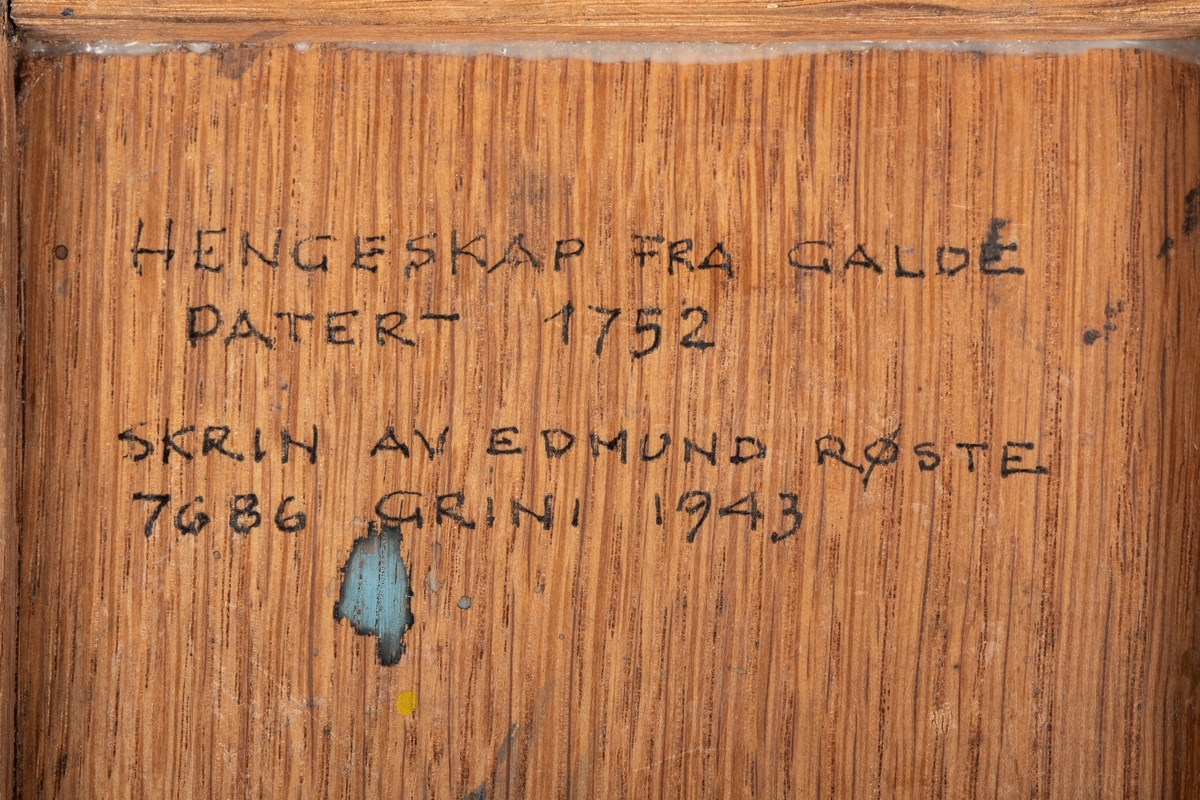 HENGESKAP FRA GALDE
DATERT 1752
SKRIN AV EDMUND RØSTE
7686 GRINI 1943